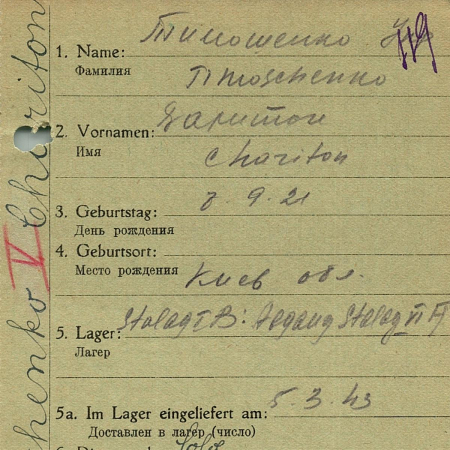 1. Name: Тимошенко
Фамилия Timoschenko
2. Vornamen: Харитон
Имя Chariton
3. Geburtstag: 8.9.21
День рождения
4. Geburtsort:
Место рождения Киев обл.
5. Lager: Stalag I B: Abgang Stalag VI A
Лагерь
5a. Im Lager eingeliefert am: 5.3.43
Доставлен в лагерь (число)
chenko V Chariton